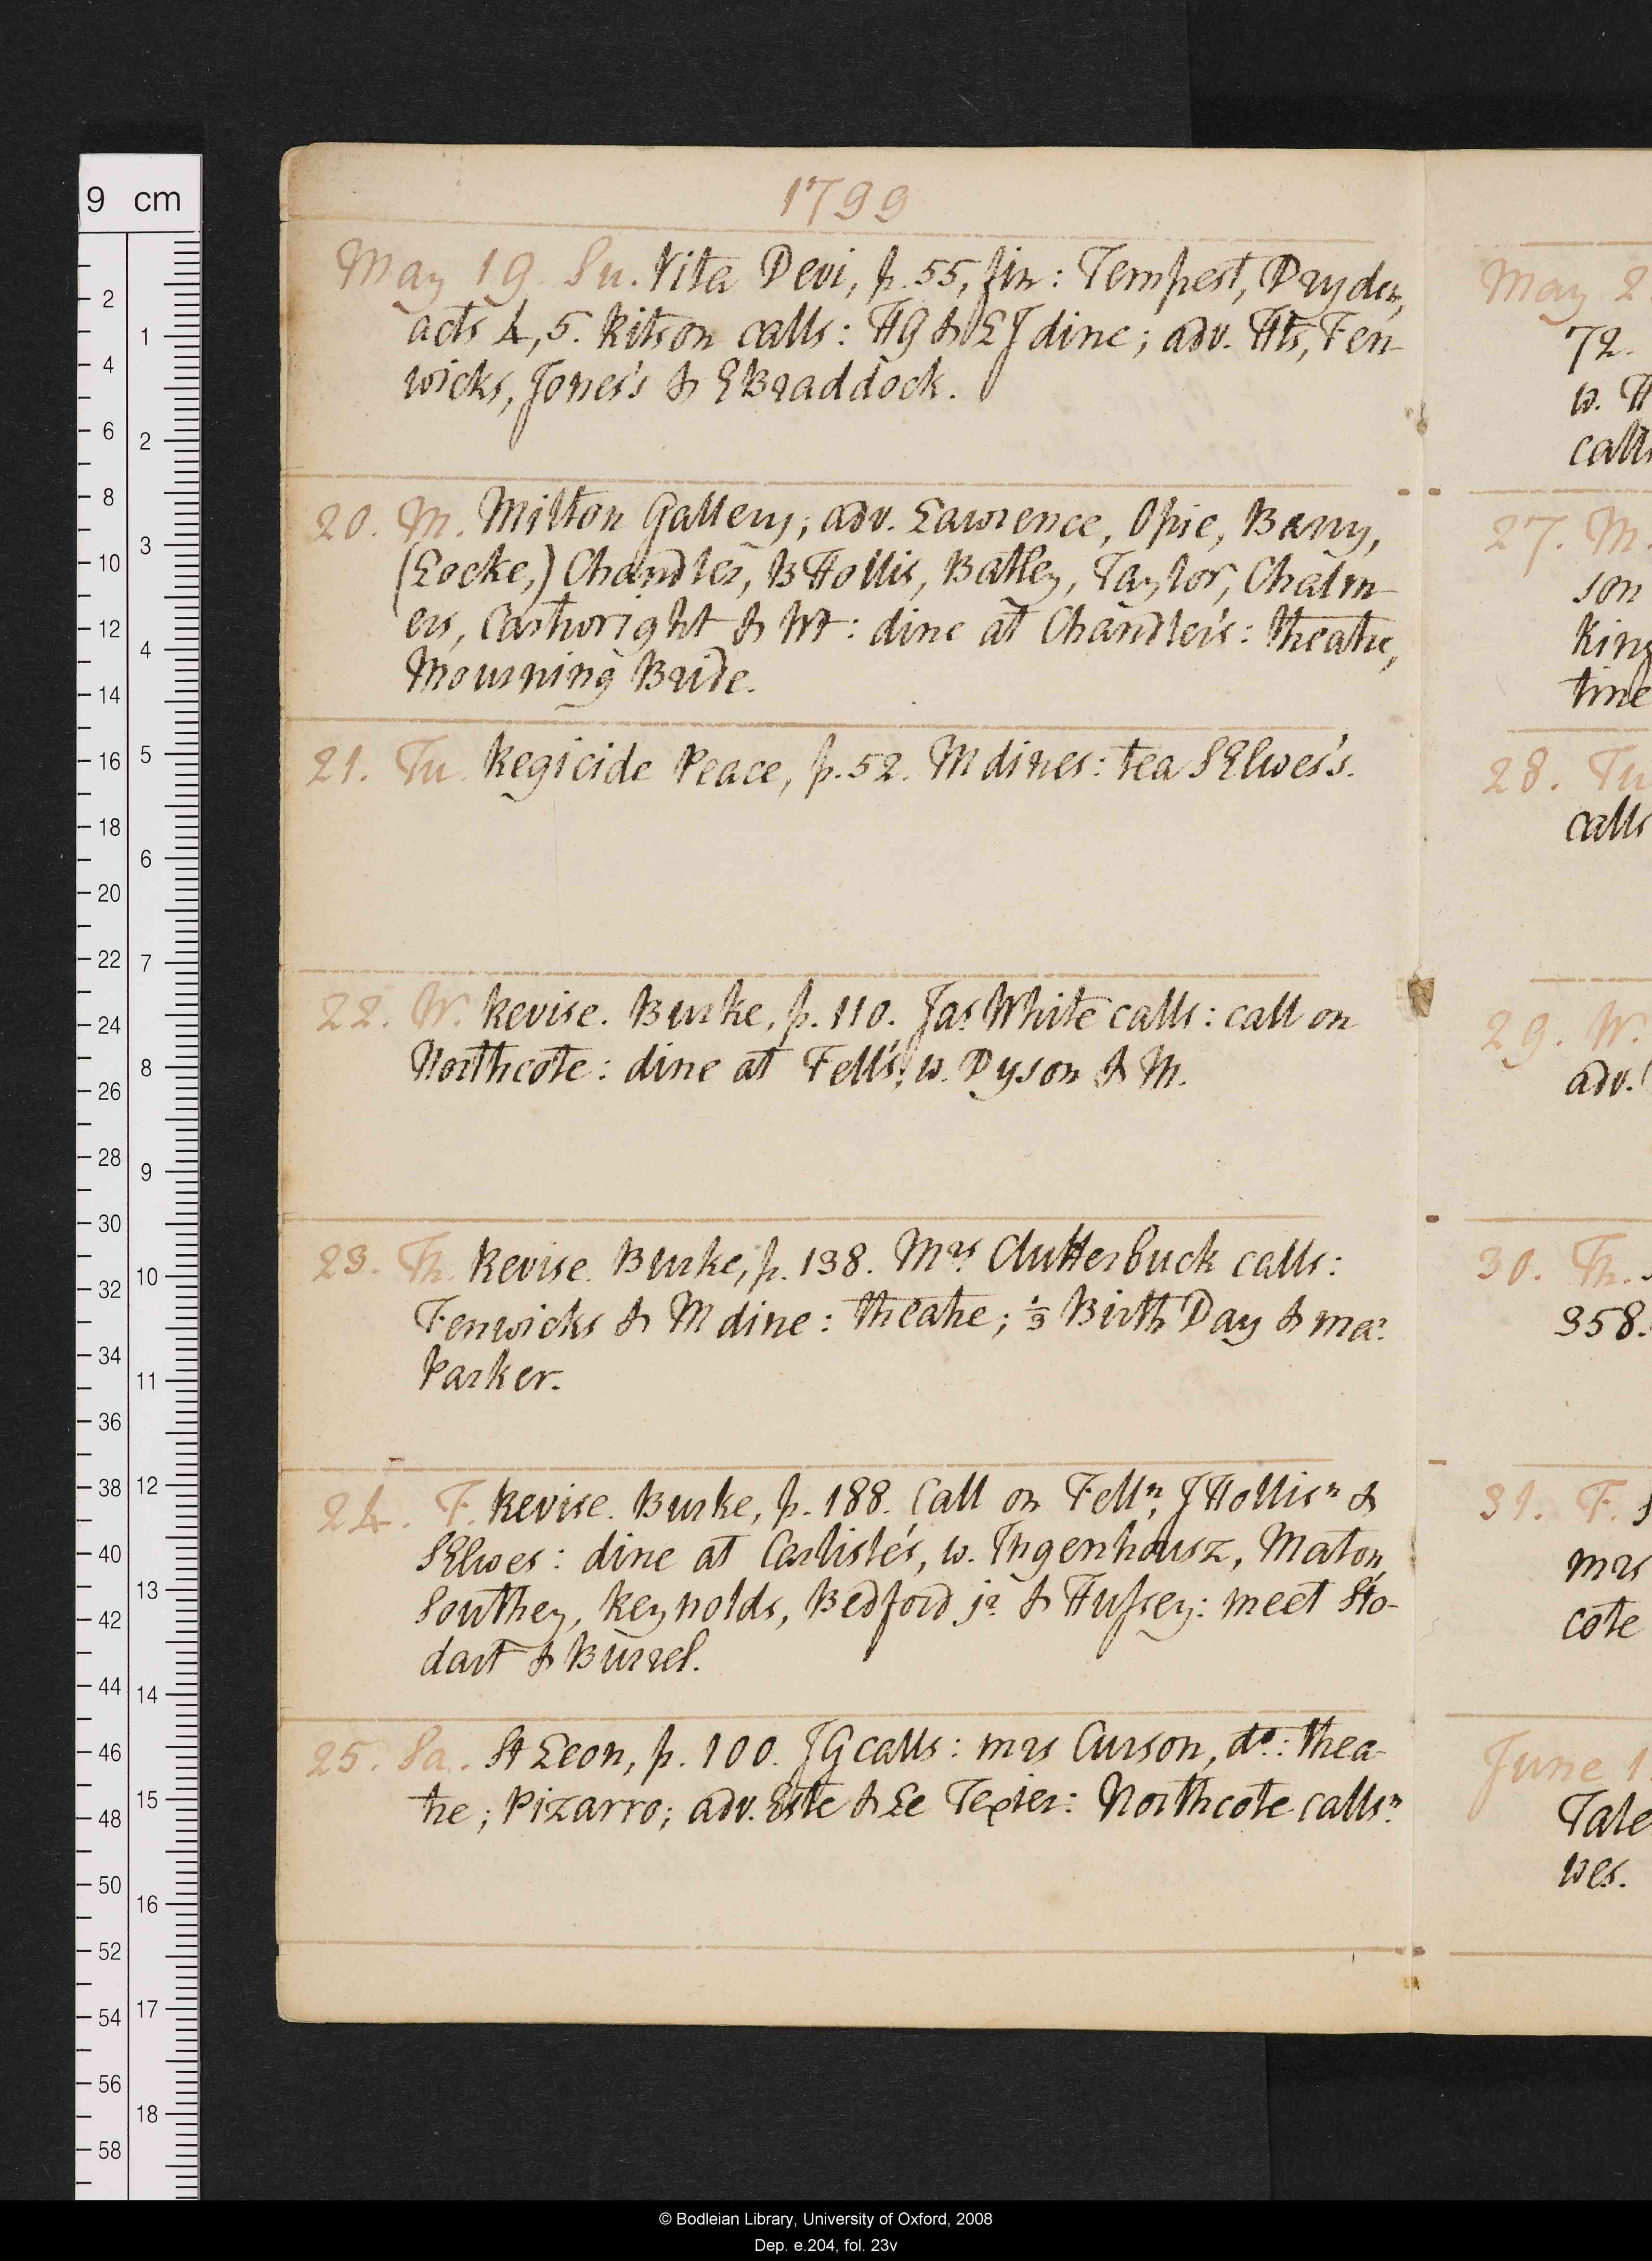 1799
May 19. Su. Vita Devi, p. 55, fin: Tempest, Dryden,
acts 4, 5. Ritson calls: HG & LJ dine; adv. Hts, Fen-
wicks, Jones's & E Braddock.
20. M. Milton Gallery; adv. Lawrence, Opie, Barry,
(Locke,) Chandler, B Hollis, Batley, Taylor, Chalm-
ers, Cartwright & Wt: dine at Chandler's: theatre,
Mourning Bride.
21. Tu. Regicide Peace, p. 52. M dines: tea SElwes's.
22. W. Revise. Burke, p. 110. Jas White calls: call on
Northcote: dine at Fell's, w. Dyson & M.
23. Th. Revise. Burke, p. 138. Mrs Clutterbuck calls:
Fenwicks & M dine: theatre; ⅓ Birth Day & ma:
Parker.
24. F. Revise. Burke, p. 188. Call on Fell n, J Hollis n &
SElwes: dine at Carlisle's, w. Ingenhousz, Maton,
Southey, Reynolds, Bedford jr & Hussey: meet Sto-
dart & Burrel.
25. Sa. St Leon, p. 100. JG calls: mrs Curson, do: thea-
tre; Pizarro; adv. Este & Le Texier: Northcote calls n.
May 2
72.
w. H
calls
27. M.
son
King
tine
28. Tu
calls
29. W.
adv.
30. Th.
358.
31. F.
mrs
cote
June 1
Tale
wes.
9 cm
2
4
6
8
10
12
14
16
18
20
22
24
26
28
30
32
34
36
38
40
42
44
46
48
50
52
54
56
58
1
2
3
4
5
6
7
8
9
10
11
12
13
14
15
16
17
18
© Bodleian Library, University of Oxford, 2008
Dep. e.204, fol. 23v